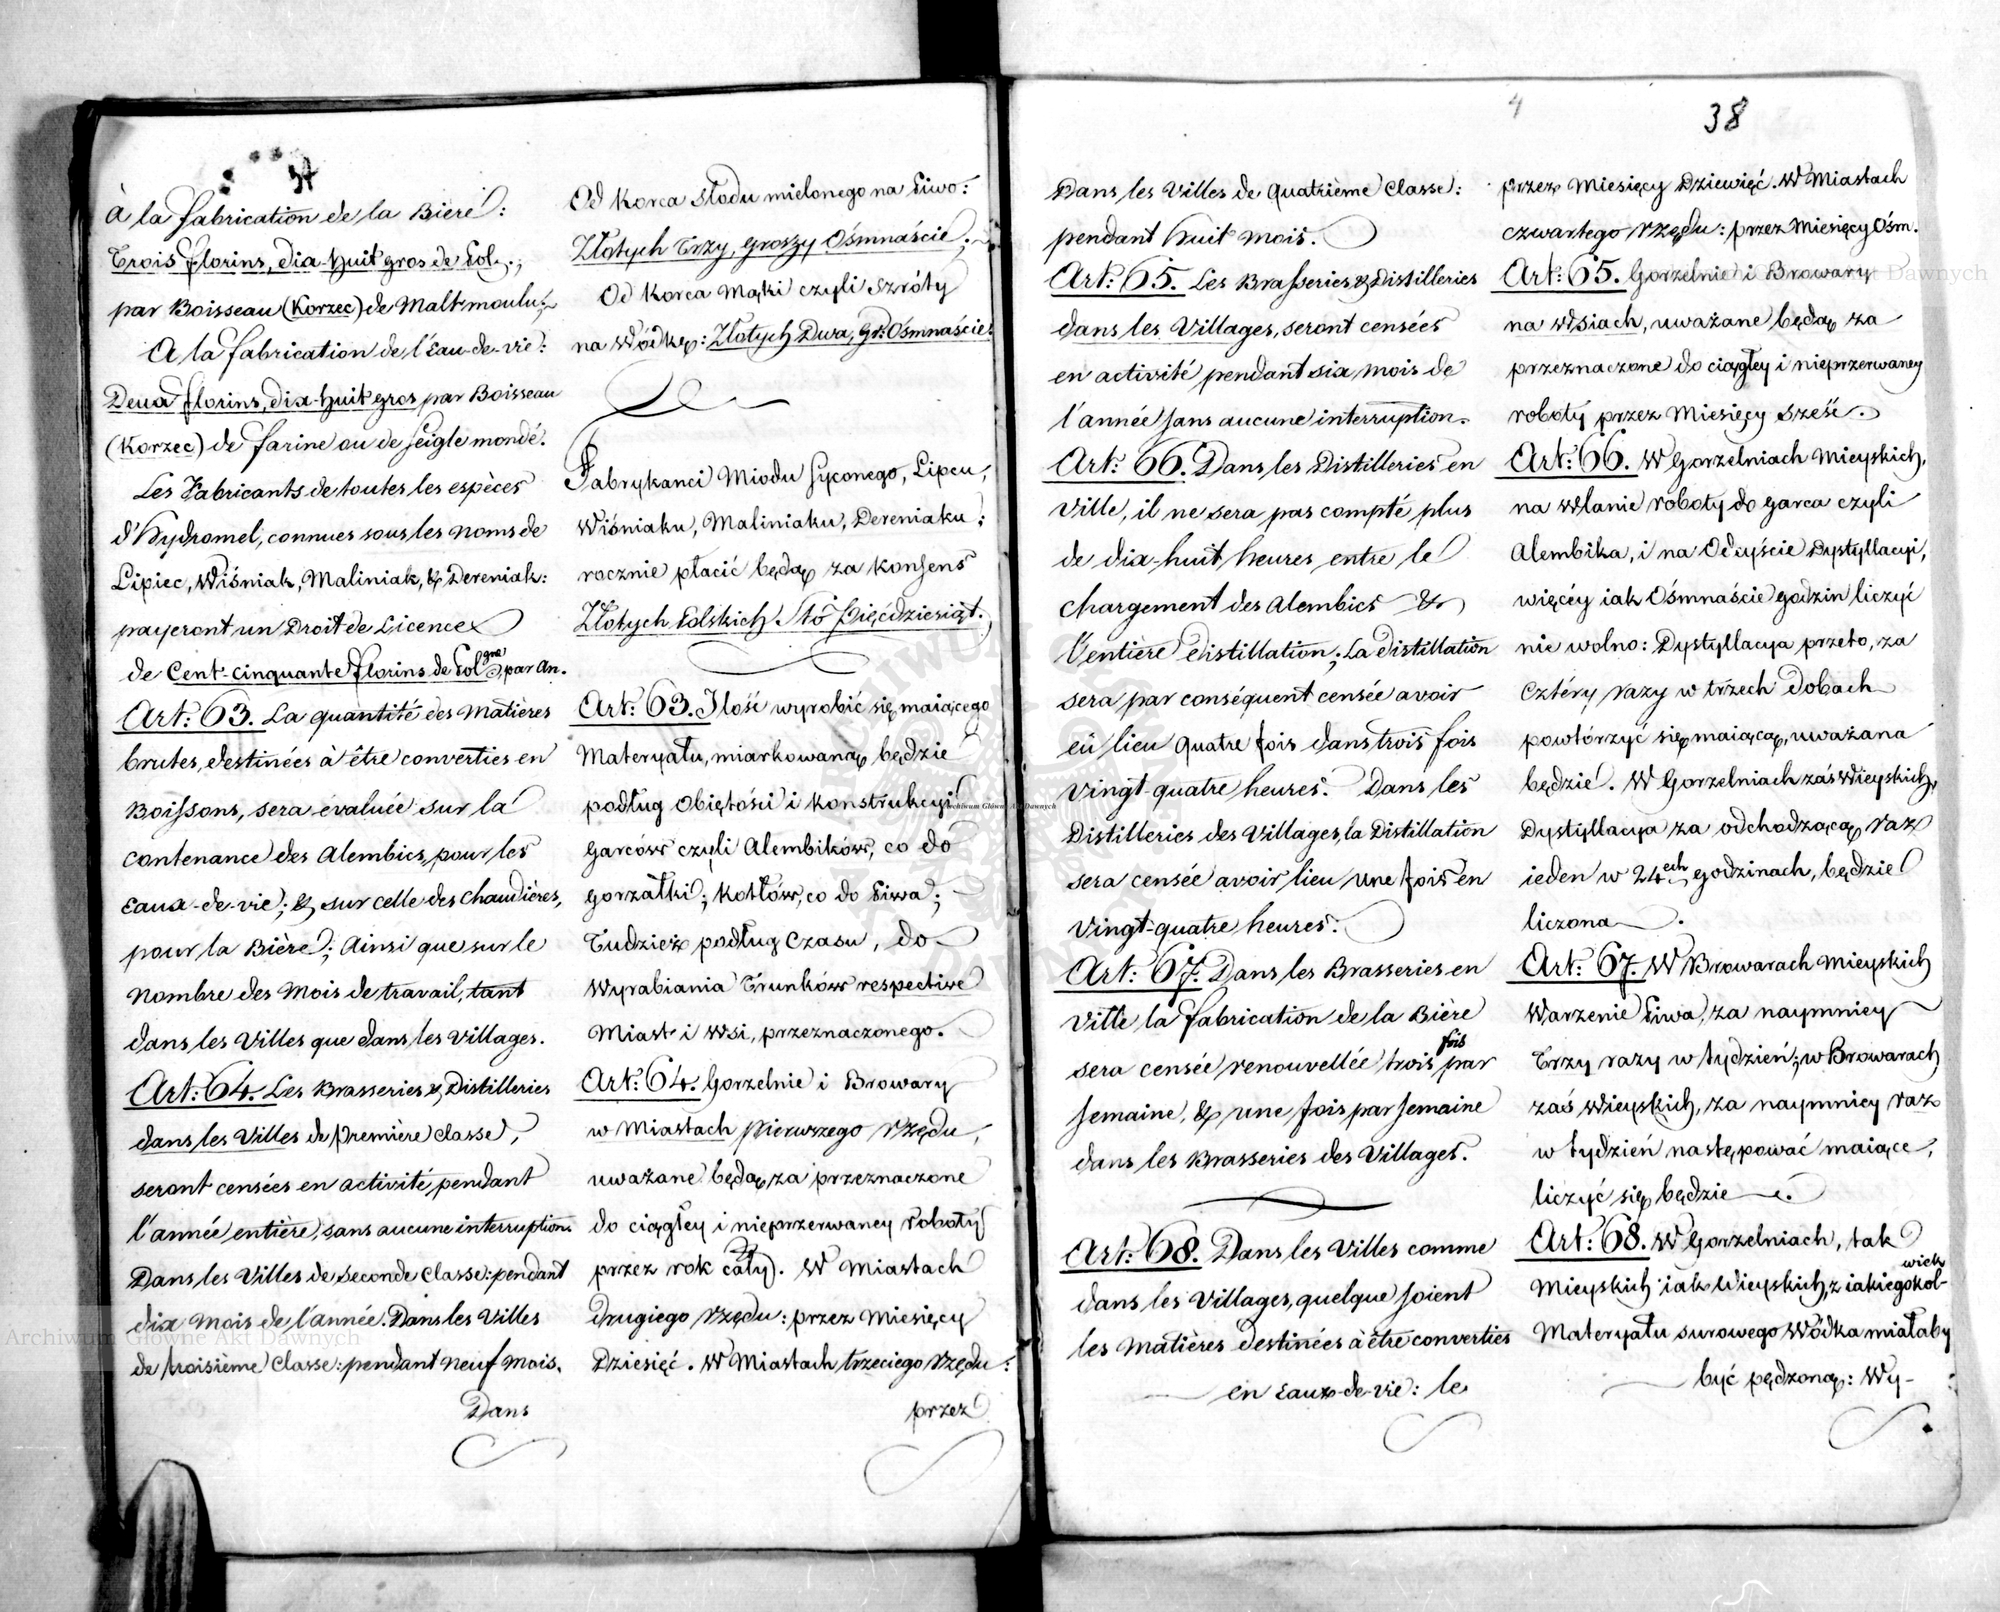 à la fabrication de la Biere:
Trois florins, dix-huit gros de Pol:,
par Boisseau (Korzec) de Malt moulu;
A la fabrication de l'Eau-de-vie:
Deux florins, dix-huit gros par Boisseau
(Korzec) de farine ou de seigle mondé.
Les Fabricants de toutes les espèces
d'Hydromel, connues sous les noms de
Lipiec, Wiśniak, Maliniak, & Dereniak:
payeront un Droit de Licence
de Cent-cinquante florins de Pol gne, par An.
Art: 63. La quantité des Matières
brutes, destinées à être converties en
Boissons, sera évaluée sur la
contenance des Alembics, pour les
Eaux-de-vie; & sur celle des Chaudières,
pour la Bière; Ainsi que sur le
Nombre des Mois de travail, tant
dans les Villes que dans les Villages.
Art: 64. Les Brasseries & Distilleries
dans les Villes de première Classe,
seront censées en activité pendant
l'année entière, sans aucune interruption.
Dans les Villes de seconde Classe: pendant
dix mois de l'année. Dans les Villes
de troisième Classe: pendant neuf mois.
Dans
Od Korca Słodu mielonego na Piwo:
Złotych Trzy, Groszy Ośmnaście;
Od Korca Mąki czyli Szróty
na Wódkę: Złotych Dwa, Gr: Ośmnaście.
Fabrykanci Miodu syconego, Lipcu,
Wiśniaku, Maliniaku, Dereniaku;
rocznie płacić będą za Konsens
Złotych Polskich Sto Pięćdziesiąt.
Art: 63. Ilość wyrobić się maiącego
Materyału, miarkowaną będzie
podług Obiętości i Konstrukcyi
Garców czyli Alembików, co do
Gorzałki; Kotłów, co do Piwa;
Tudzież podług Czasu, do
Wyrabiania Trunków respective
Miast i Wsi, przeznaczonego.
Art: 64. Gorzelnie i Browary
w Miastach pierwszego rzędu,
uważane będą za przeznaczone
do ciągłey i nieprzerwaney roboty
przez rok cały. W Miastach
Drugiego rzędu: przez Miesięcy
Dziesięć. W Miastach trzeciego rzędu:
przez
4
38
Dans les Villes de quatrième Classe:
pendant huit mois.
Art: 65. Les Brasseries & Distilleries
dans les Villages, seront censées
en activité pendant six mois de
l'année sans aucune interruption.
Art: 66. Dans les Distilleries en
Ville, il ne sera pas compté plus
de dix-huit heures entre le
chargement des Alembics &
l'entière distillation; La distillation
sera par conséquent censée avoir
eü lieu quatre fois dans trois fois
vingt-quatre heures. Dans les
Distilleries des Villages, la Distillation
sera censée avoir lieu une fois en
vingt-quatre heures.
Art: 67. Dans les Brasseries en
Ville la fabrication de la Bière
sera censée renouvellée trois fois par
semaine, & une fois par semaine
dans les Brasseries des Villages.
Art: 68. Dans les Villes comme
dans les Villages, quelque soient
les Matières destinées à être converties
en Eaux-de-vie: le
przez Miesięcy Dziewięć. W Miastach
czwartego rzędu: przez Miesięcy Ośm.
Art: 65. Gorzelnie i Browary
na Wsiach, uważane będą za
przeznaczone do ciągłey i nieprzerwaney
roboty przez Miesięcy Sześć.
Art: 66. W Gorzelniach Mieyskich,
na wlanie roboty do garca czyli
Alembika, i na Odeyście Dystyllacyi,
więcéy iak Ośmnaście godzin liczyć
nie wolno: Dystyllacya przeto, za
Cztéry razy w trzech Dobach
powtórzyć się maiącą, uważana
będzie. W Gorzelniach zaś Wieyskich,
Dystyllacya za odchodzącą raz
ieden w 24ech godzinach, będzie
liczona.
Art: 67. W Browarach Mieyskich
Warzenie Piwa, za naymniey
Trzy razy w tydzień; w Browarach
zaś Wieyskich, za naymniey raz
w tydzień następować maiące,
liczyć się będzie.
Art: 68. W Gorzelniach, tak
Mieyskich iak Wieyskich, z iakiegokol-
wiek
Materyału surowego Wódka miałaby
być pędzoną: Wy-
Archiwum Główne Akt Dawnych